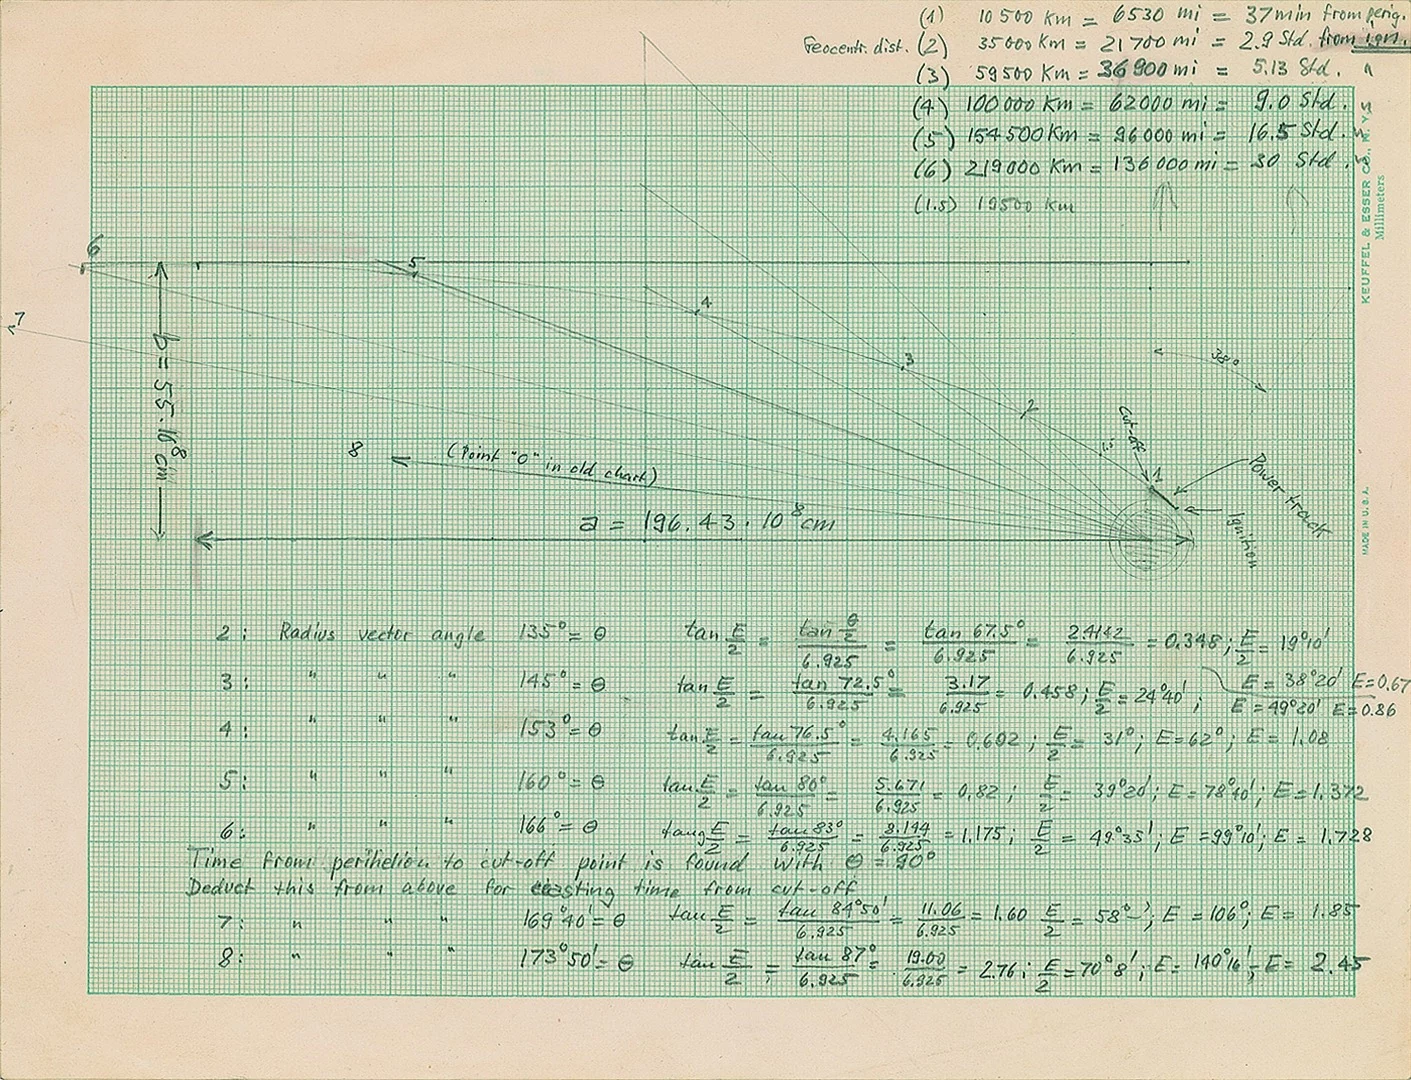 (1) 10 500 Km = 6530 mi = 37 min from perig.
Geocentr. dist. (2) 35000 Km = 21 700 mi = 2.9 Std. from ign.
(3) 59 500 Km = 36 900 mi = 5.13 Std. "
(4) 100 000 Km = 62000 mi = 9.0 Std.
(5) 154 500 Km = 96 000 mi = 16.5 Std.
(6) 219 000 Km = 136 000 mi = 30 Std.
(1.5) 19500 Km
KEUFFEL & ESSER CO., N. Y.
Millimeters
MADE IN U.S.A.
6
5
4
7
3
38°
2
cut-off
1.5
1
b = 55.10⁸ cm
8
(Point "0" in old chart)
Power track
Ignition
a = 196.43 · 10⁸ cm
2: Radius vector angle 135° = θ tan E/2 = tan θ/2 / 6.925 = tan 67.5° / 6.925 = 2.4142 / 6.925 = 0.348; E/2 = 19°10'
E = 38°20' E = 0.67
3: " " " 145° = θ tan E/2 = tan 72.5° / 6.925 = 3.17 / 6.925 = 0.458; E/2 = 24°40'; E = 49°20' E = 0.86
4: " " " 153° = θ tan E/2 = tan 76.5° / 6.925 = 4.165 / 6.925 = 0.602; E/2 = 31°; E = 62°; E = 1.08
5: " " " 160° = θ tan E/2 = tan 80° / 6.925 = 5.671 / 6.925 = 0.82; E/2 = 39°20'; E = 78°40'; E = 1.372
6: " " " 166° = θ tang E/2 = tan 83° / 6.925 = 8.144 / 6.925 = 1.175; E/2 = 49°35'; E = 99°10'; E = 1.728
Time from perihelion to cut-off point is found with θ = 90°
Deduct this from above for coasting time from cut-off
7: " " " 169°40' = θ tan E/2 = tan 84°50' / 6.925 = 11.06 / 6.925 = 1.60 E/2 = 58°-'; E = 106°; E = 1.85
8: " " " 173°50' = θ tan E/2 = tan 87° / 6.925 = 19.00 / 6.925 = 2.76; E/2 = 70°8'; E = 140°16'; E = 2.45